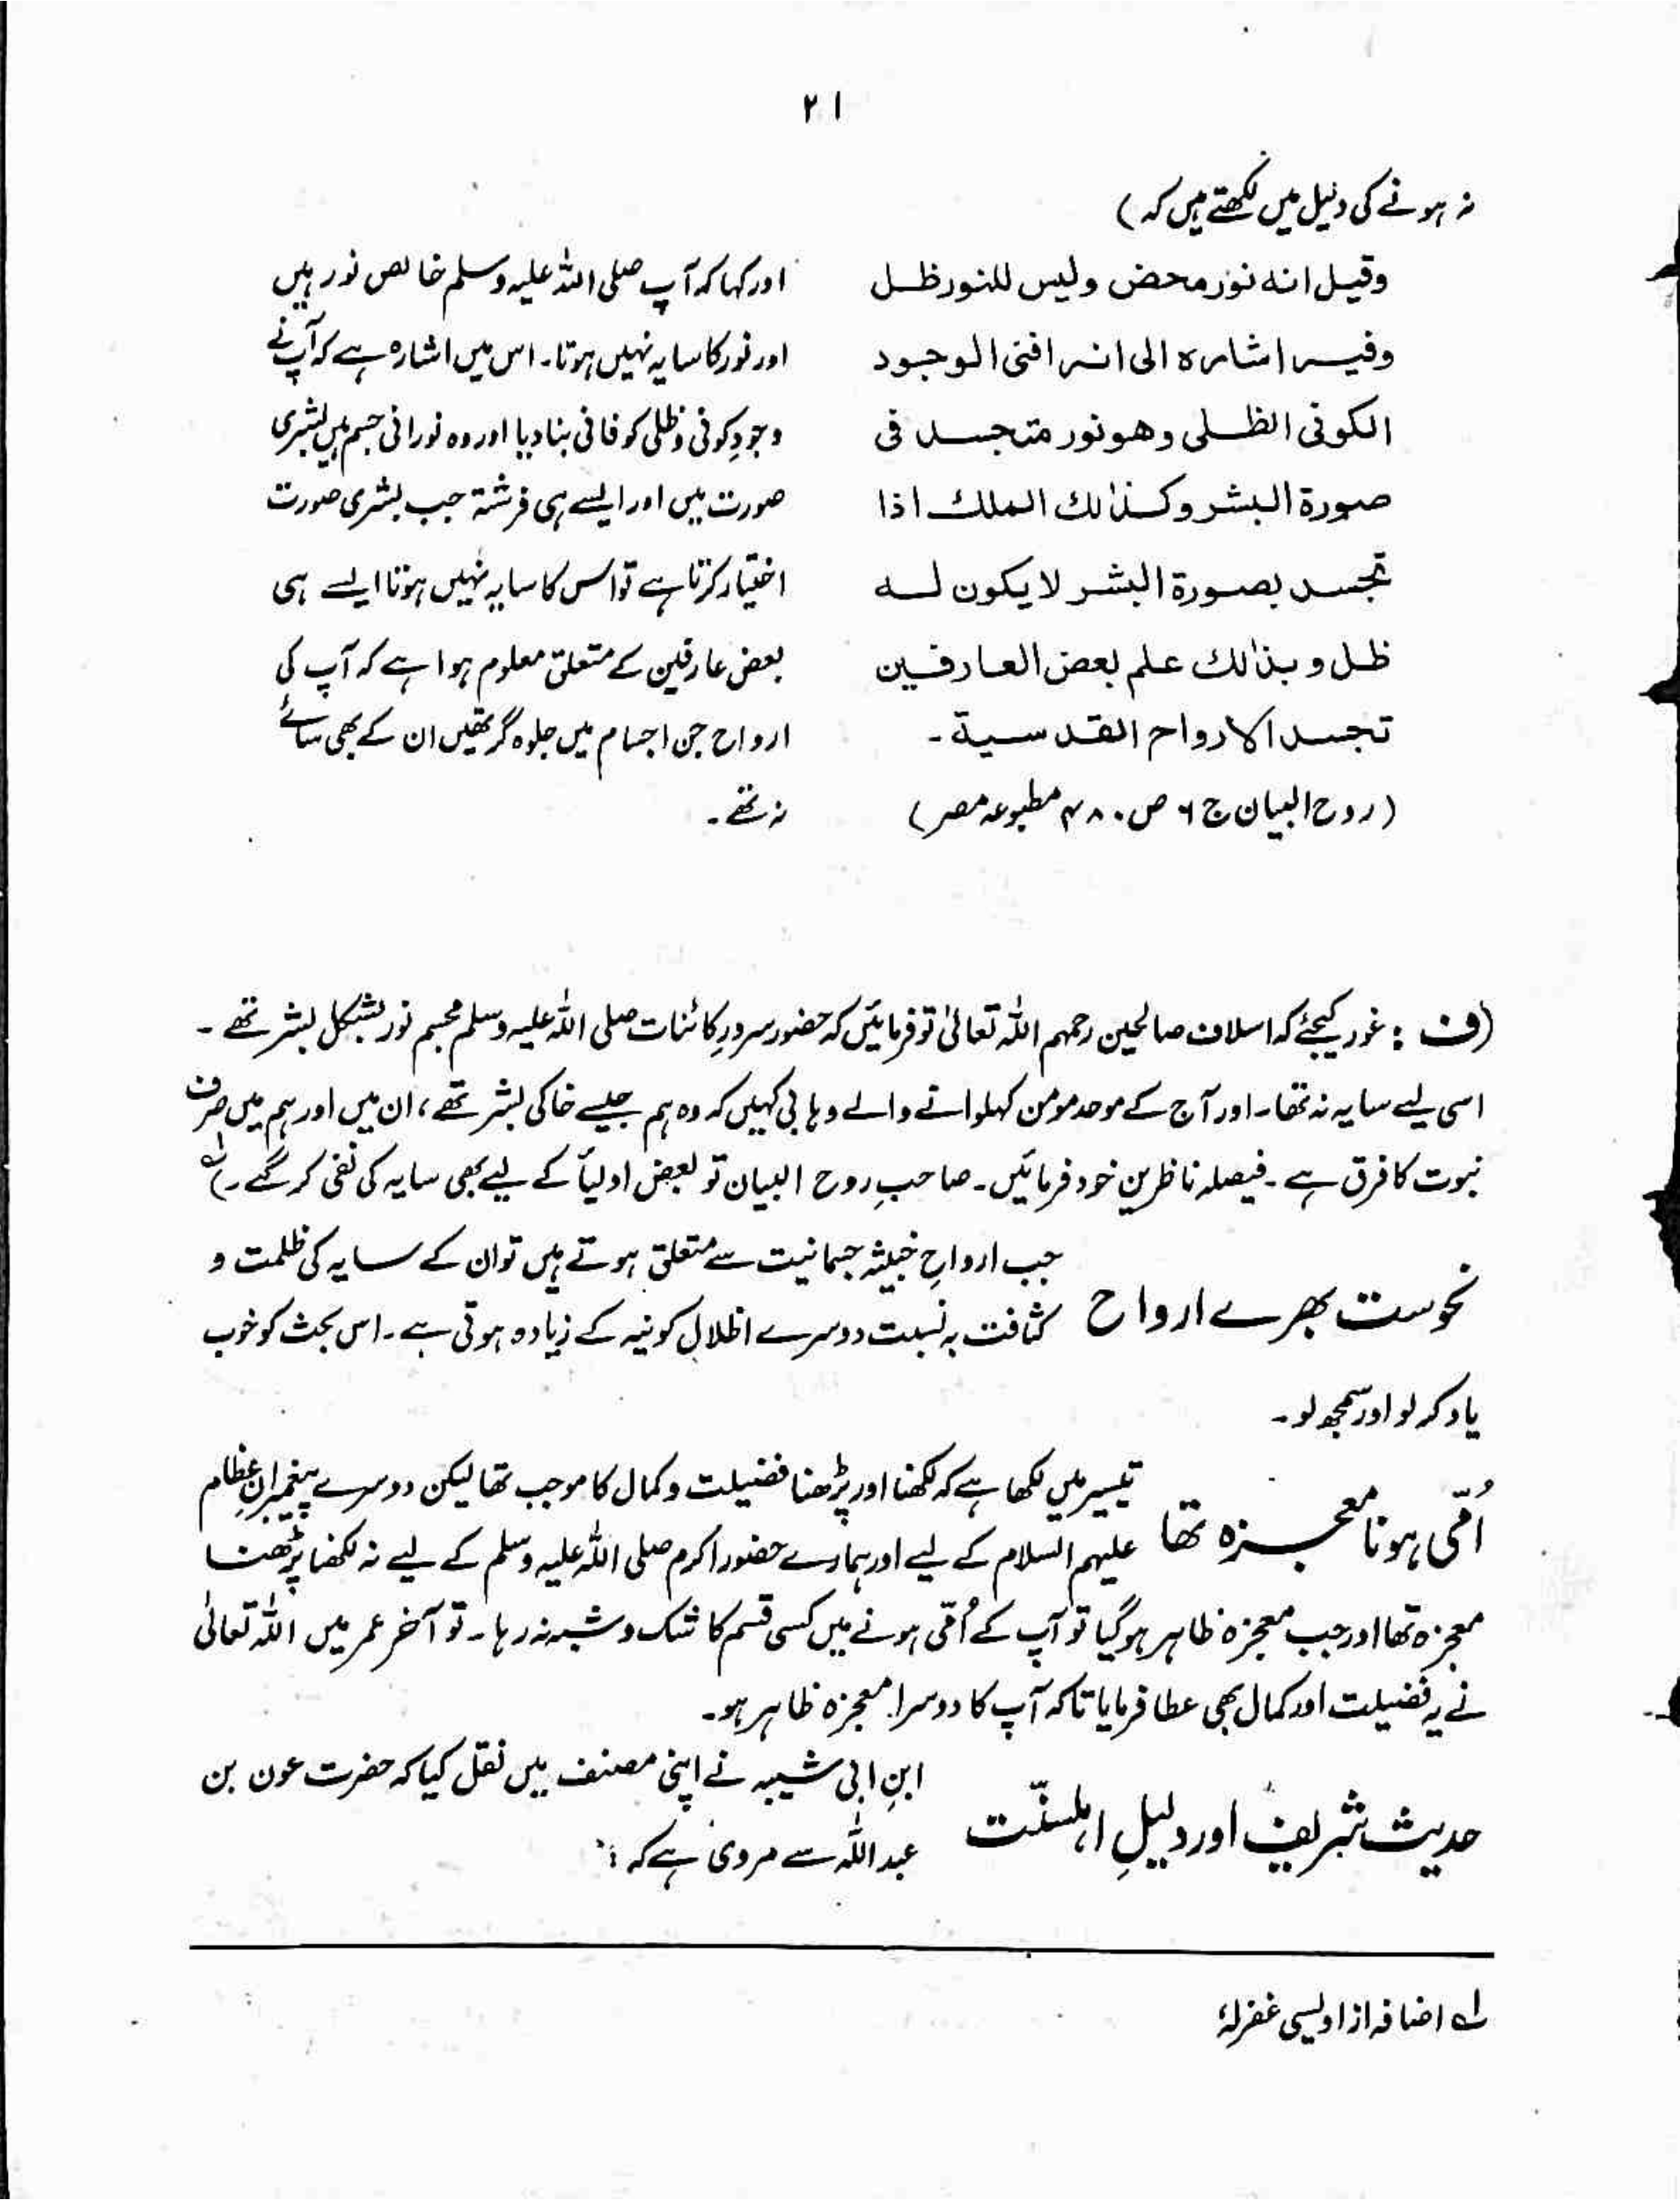 ۲۱
نہ ہونے کی دلیل میں لکھتے ہیں کہ)
وقیل انه نور محض ولیس للنور ظل
وفیه اشارہ الی انه افنی الوجود
الکونی الظلی وهو نور متجسد فی
صورة البشر وکذالك الملك اذا
تجسد بصورة البشر لا یکون له
ظل و بذالك علم بعض العارفین
تجسد الارواح القدسیة۔
(روح البیان ج ۶ ص ۴۸۰ مطبوعہ مصر)
اور کہا کہ آپ صلی اللہ علیہ وسلم خالص نور ہیں
اور نور کا سایہ نہیں ہوتا۔ اس میں اشارہ ہے کہ آپ نے
وجودِ کونی وظلی کو فانی بنا دیا اور وہ نورانی جسم ہیں بشری
صورت میں اور ایسے ہی فرشتہ جب بشری صورت
اختیار کرتا ہے تو اس کا سایہ نہیں ہوتا ایسے ہی
بعض عارفین کے متعلق معلوم ہوا ہے کہ آپ کی
ارواح جن اجسام میں جلوہ گر تھیں ان کے بھی سائے
نہ تھے۔
(ف : غور کیجئے کہ اسلاف صالحین رحمہم اللہ تعالیٰ تو فرمائیں کہ حضور سرورِ کائنات صلی اللہ علیہ وسلم مجسم نور بشکل بشر تھے۔
اسی لیے سایہ نہ تھا۔ اور آج کے موحد مومن کہلوانے والے وہابی کہیں کہ وہ ہم جیسے خاکی بشر تھے، ان میں اور ہم میں صرف
نبوت کا فرق ہے۔ فیصلہ ناظرین خود فرمائیں۔ صاحبِ روح البیان تو بعض اولیأ کے لیے بھی سایہ کی نفی کر گئے۔)؎۱
نحوست بھرے ارواح جب ارواحِ خبیثہ جسمانیت سے متعلق ہوتے ہیں تو ان کے سایہ کی ظلمت و
کثافت بہ نسبت دوسرے اظلالِ کونیہ کے زیادہ ہوتی ہے۔ اس بحث کو خوب
یاد کر لو اور سمجھ لو۔
اُمّی ہونا معجزہ تھا تیسیر میں لکھا ہے کہ لکھنا اور پڑھنا فضیلت و کمال کا موجب تھا لیکن دوسرے پیغمبرانِ عظام
علیہم السلام کے لیے اور ہمارے حضور اکرم صلی اللہ علیہ وسلم کے لیے نہ لکھنا پڑھنا
معجزہ تھا اور جب معجزہ ظاہر ہو گیا تو آپ کے اُمّی ہونے میں کسی قسم کا شک و شبہ نہ رہا۔ تو آخر عمر میں اللہ تعالیٰ
نے یہ فضیلت اور کمال بھی عطا فرمایا تاکہ آپ کا دوسرا معجزہ ظاہر ہو۔
حدیث شریف اور دلیلِ اہلسنّت ابنِ ابی شیبہ نے اپنی مصنف میں نقل کیا کہ حضرت عون بن
عبد اللہ سے مروی ہے کہ :
؎۱ اضافہ از اویسی غفرلہٗ